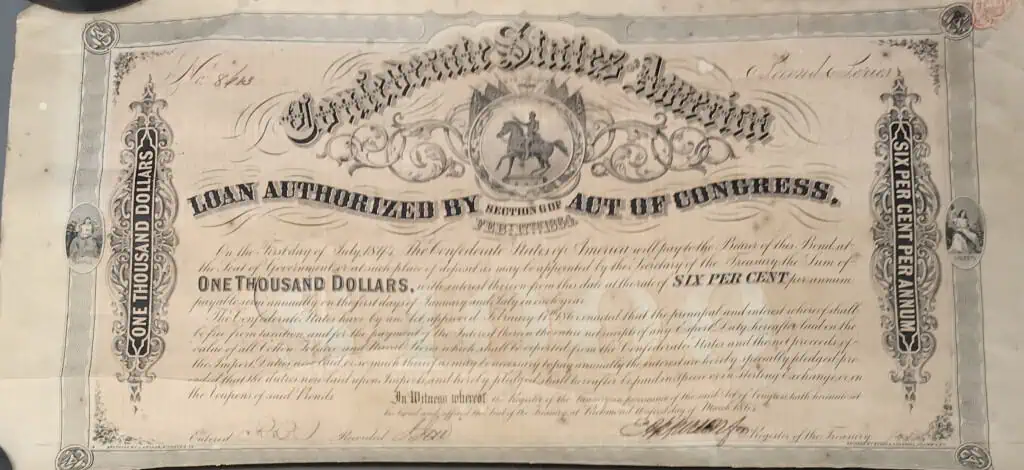 No. 8413
Second Series
Confederate States America
LOAN AUTHORIZED BY SECTION 6 OF ACT OF CONGRESS,
FEB. 17TH 1864.
ONE THOUSAND DOLLARS
SIX PER CENT PER ANNUM
On the First day of July, 1894, The Confederate States of America will pay to the Bearer of this Bond, at
the Seat of Government, or at such place of deposit as may be appointed by the Secretary of the Treasury, the Sum of
ONE THOUSAND DOLLARS, with interest thereon from this date at the rate of SIX PER CENT per annum
payable semi annually on the first days of January and July in each year.
The Confederate States have by an Act approved February 17th 1864 enacted that the principal and interest whereof shall
be free from taxation, and for the payment of the Interest thereon the entire net receipts of any Export Duty hereafter laid on the
value of all Cotton, Tobacco and Naval Stores, which shall be exported from the Confederate States and the net proceeds of
the Import Duties now laid, or so much thereof as may be necessary to pay annually the interest are hereby specially pledged pro-
vided that the duties now laid upon Imports and hereby pledged shall hereafter be paid in specie or in Sterling Exchange or in
the Coupons of said Bonds.
In Witness whereof the Register of the Treasury in pursuance of the said Act of Congress hath hereunto set
his hand and affixed the Seal of the Treasury at Richmond this day of March 1865
Entered Recorded Register of the Treasury